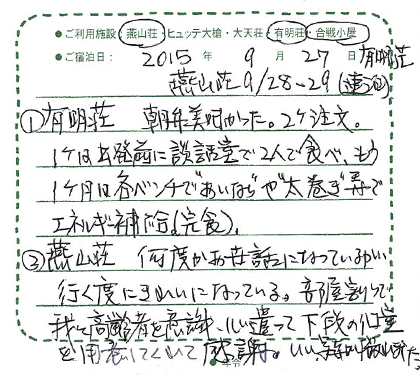 ●ご利用施設:燕山荘・ヒュッテ大槍・大天荘・有明荘・合戦小屋
●ご宿泊日: 2015年 9月 27日 有明荘
燕山荘9/28-29(連泊)
①有明荘 朝弁美味かった。2ケ注文。
1ケ目は発前に談話室で2人で食べ、もう
1ケ目は各ベンチで"あいなば"や"太巻き"等で
エネルギー補給(完食)。
②燕山荘 何度かお世話になっているが
行く度にきれいになっている。部屋割りで
我々高齢者を意識、い遣って下段の個室
を用意してくれて感謝。いい